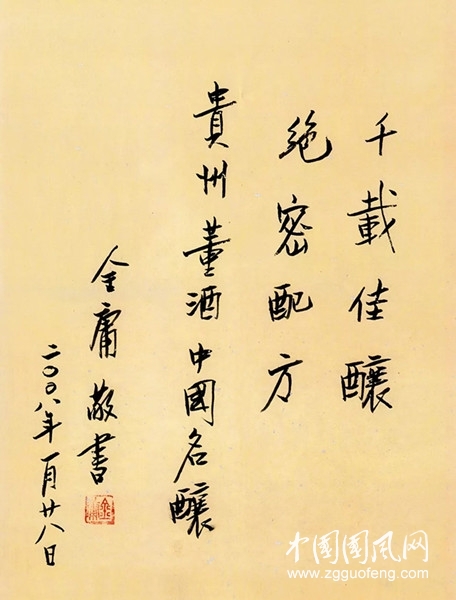 千載佳釀
絕密配方
貴州董酒中國名釀
金庸敬書
二〇〇八年一月廿八日
金庸
中国国风网
www.zgguofeng.com